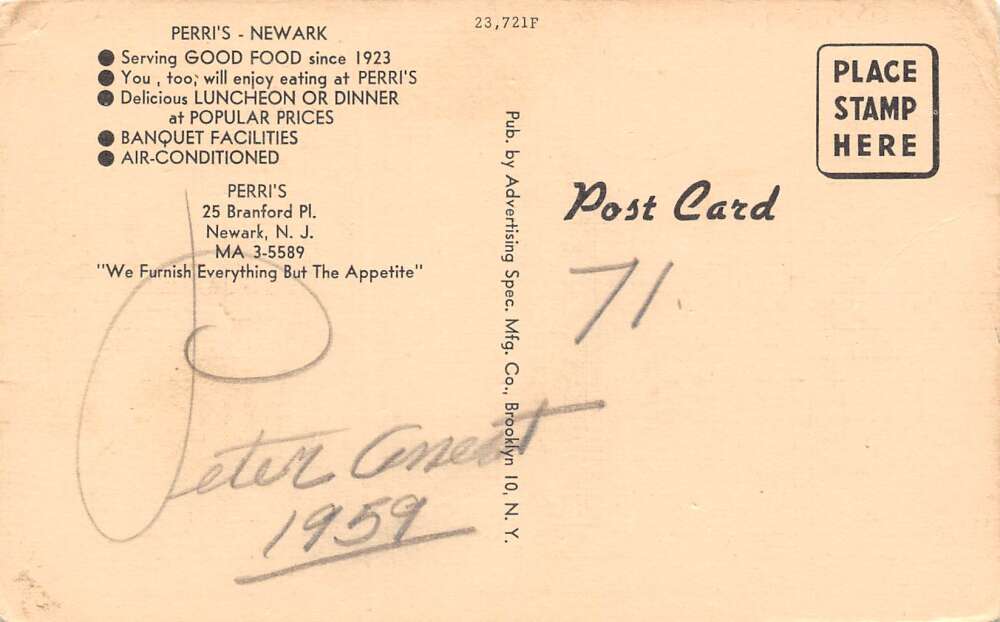 23,721F
PERRI'S - NEWARK
● Serving GOOD FOOD since 1923
● You , too, will enjoy eating at PERRI'S
● Delicious LUNCHEON OR DINNER
at POPULAR PRICES
● BANQUET FACILITIES
● AIR-CONDITIONED
PERRI'S
25 Branford Pl.
Newark, N. J.
MA 3-5589
"We Furnish Everything But The Appetite"
Peter
1959
Pub. by Advertising Spec. Mfg. Co., Brooklyn 10, N. Y.
PLACE
STAMP
HERE
Post Card
71.